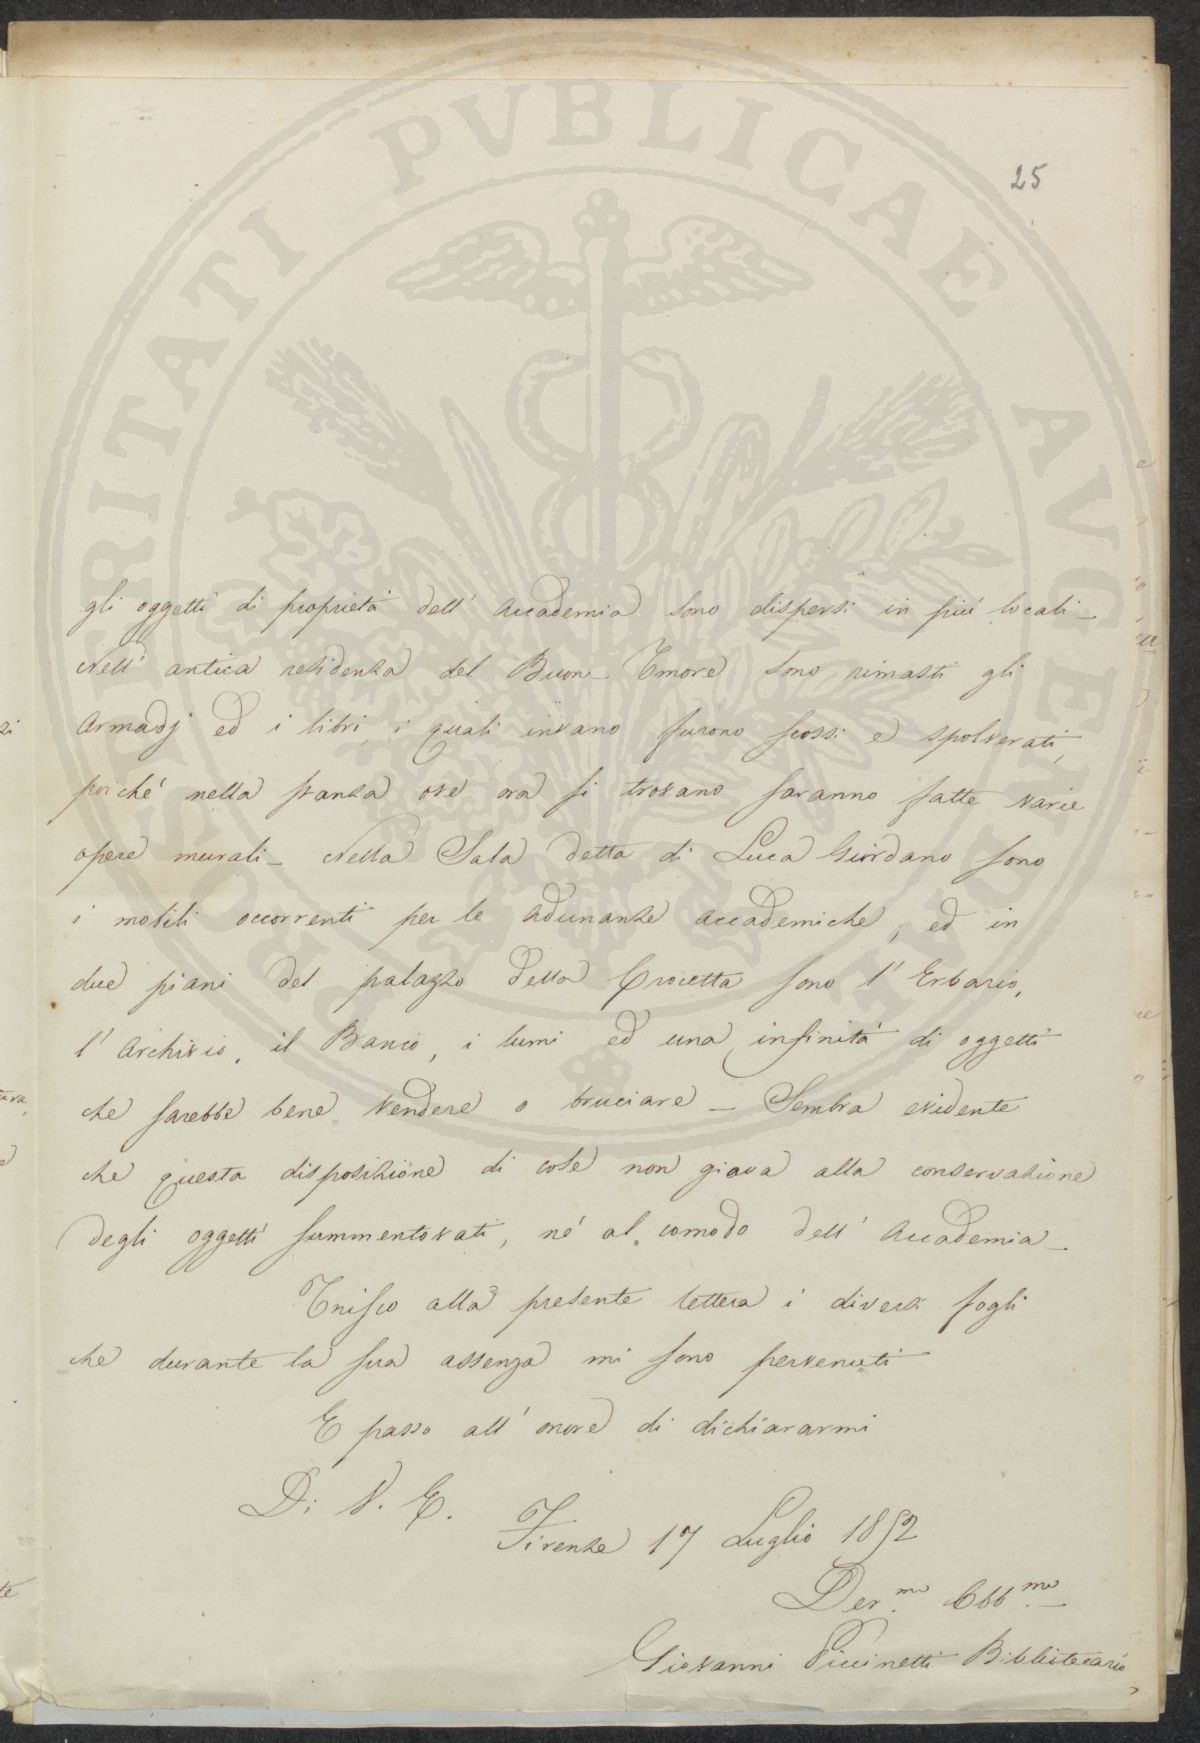 25
gli oggetti di proprietà dell' Accademia sono dispersi in più locali_
Nell' antica residenza del Buon- Umore sono rimasti gli
Armadj ed i libri, i quali invano furono scossi e spolverati,
poiché nella stanza ove ora si trovano saranno fatte varie
opere murali_ Nella Sala detta di Luca Giordano sono
i mobili occorrenti per le Adunanze Accademiche, ed in
due piani del palazzo della Crocetta sono l' Erbario,
l' Archivio, il Banco, i lumi ed una infinità di oggetti
che sarebbe bene vendere o bruciare _ Sembra evidente
che questa disposizione di cose non giova alla conservazione
degli oggetti summentovati, né al comodo dell' Accademia_
Unisco alla presente lettera i diversi fogli
che durante la sua assenza mi sono pervenuti
E passo all' onore di dichiararmi
Di V. E.
Firenze 17 Luglio 1852
Dev.mo Obb.mo
Giovanni Piccinetti Bibliotecario
PVBLICAE